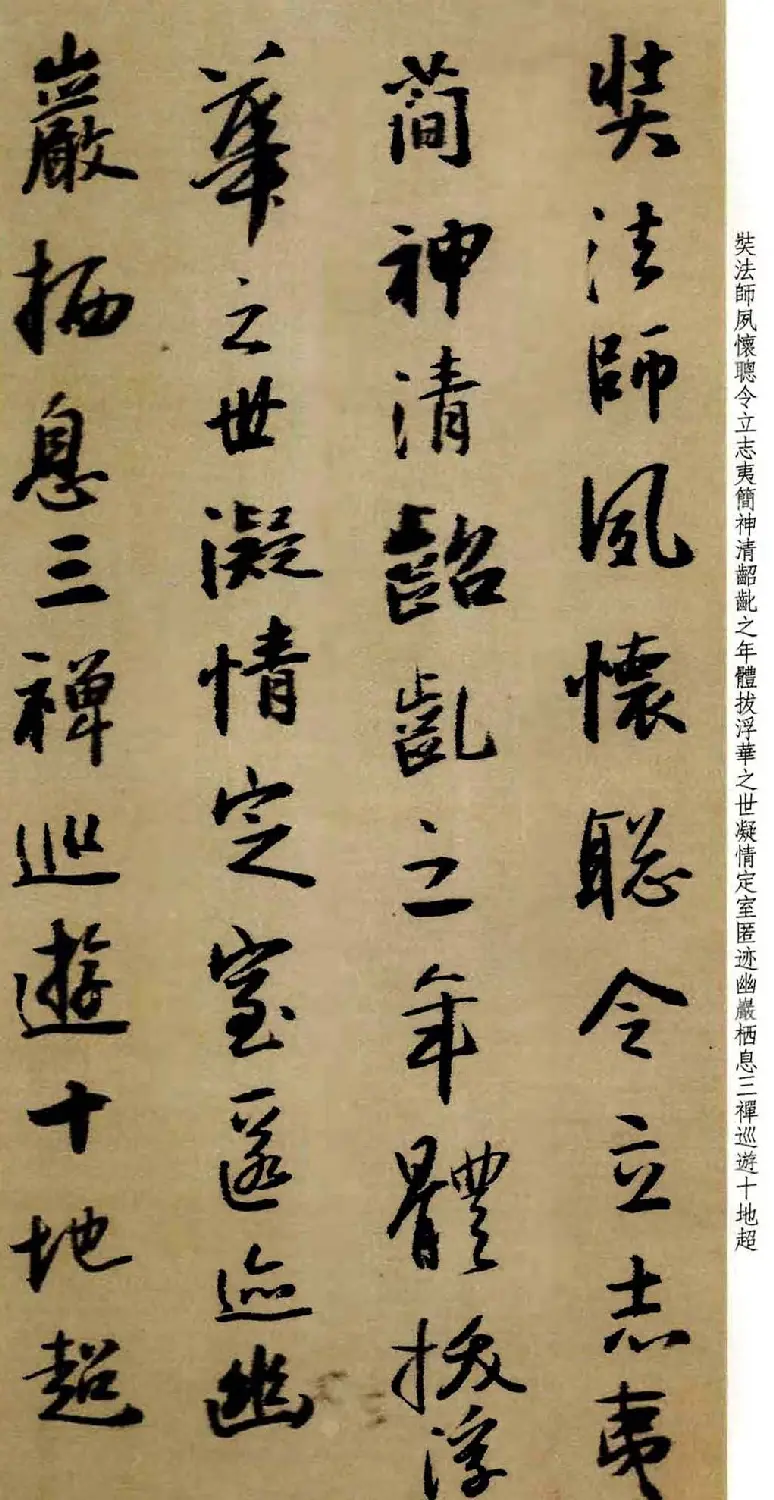 奘法師夙懷聰令立志夷
簡神清齠齔之年體拔浮
華之世凝情定室匿迹幽
巖栖息三禪巡遊十地超
奘法師夙懷聰令立志夷簡神清齠齔之年體拔浮華之世凝情定室匿迹幽巖栖息三禪巡遊十地超